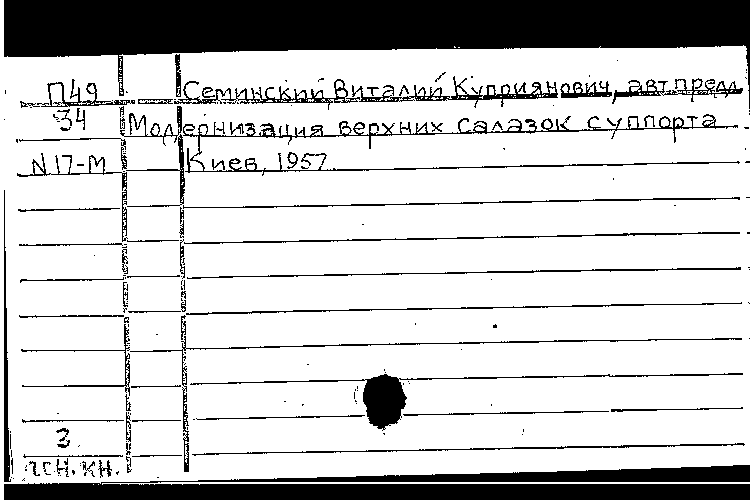 П49 Семинский, Виталий Куприянович, авт.предл.
34 Модернизация верхних салазок суппорта
N17-М Киев, 1957
3
ген. кн.